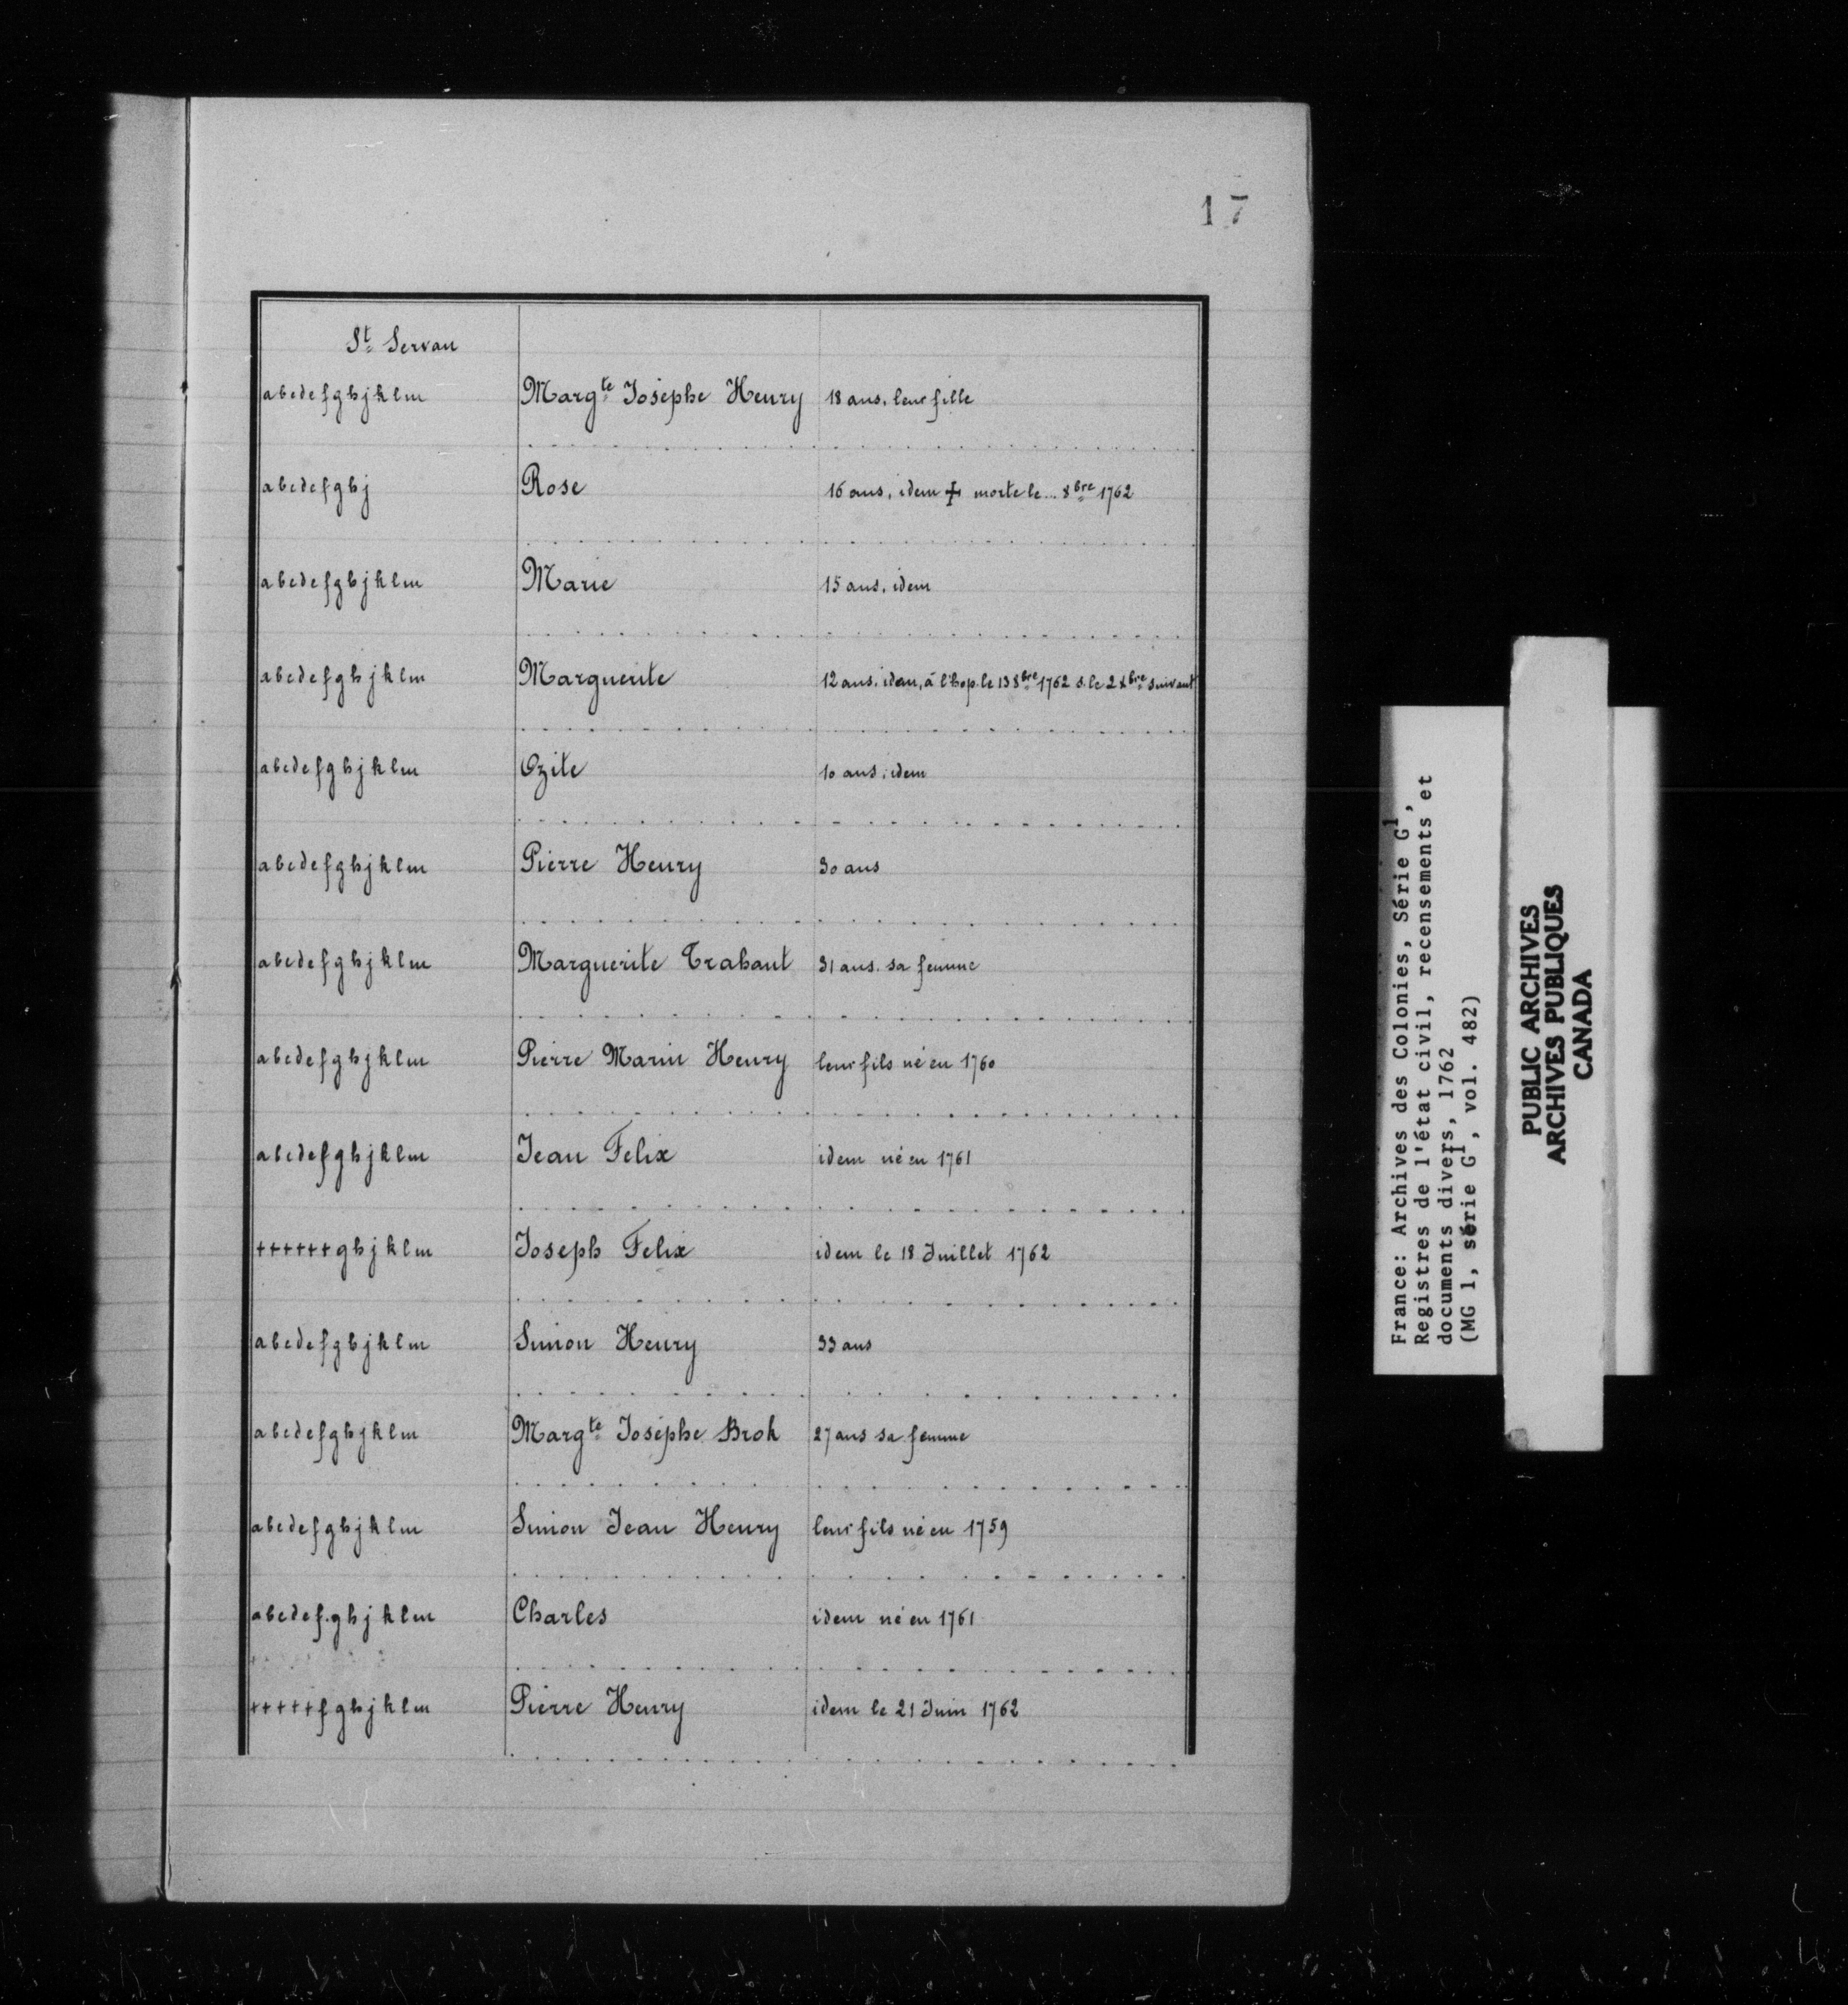 17
St Servan
abcdefghjklm Margte Josephe Henry 18 ans, leur fille
abcdefghj Rose 16 ans, idem ‡ morte le ... 8bre 1762
abcdefghjklm Marie 15 ans, idem
abcdefghjklm Marguerite 12 ans, idem, à l'hop. le 13 8bre 1762 s. le 2 Xbre suivant
abcdefghjklm Ozite 10 ans, idem
abcdefghjklm Pierre Henry 30 ans
abcdefghjklm Marguerite Trahaut 31 ans. sa femme
abcdefghjklm Pierre Marin Henry leur fils né en 1760
abcdefghjklm Jean Felix idem né en 1761
++++++ghjklm Joseph Felix idem le 18 Juillet 1762
abcdefghjklm Simon Henry 33 ans
abcdefghjklm Margte Josephe Brok 27 ans sa femme
abcdefghjklm Simon Jean Henry leur fils né en 1759
abcdef.ghjklm Charles idem né en 1761
+++++fghjklm Pierre Henry idem le 21 Juin 1762
France: Archives des Colonies, Série G1,
Registres de l'état civil, recensements et
documents divers, 1762
(MG 1, série G1, vol. 482)
PUBLIC ARCHIVES
ARCHIVES PUBLIQUES
CANADA